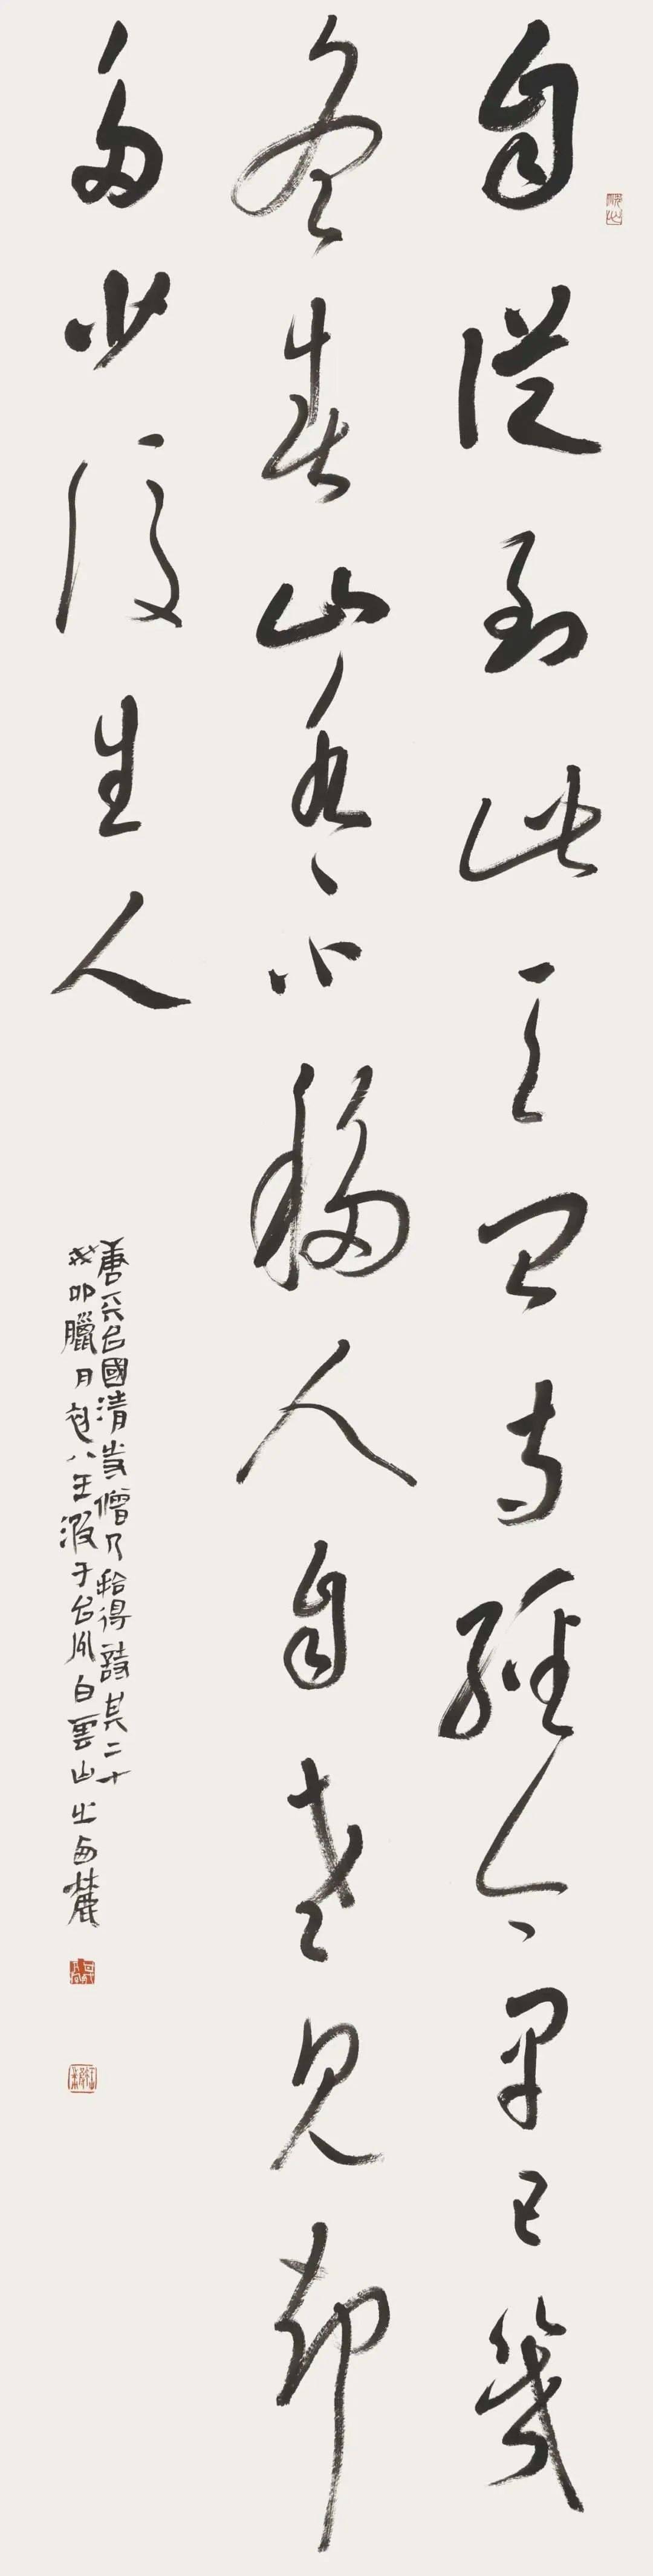 自從到此天台寺經今早已幾
冬春山水不移人自老見卻
多少後生人
唐天台國清寺僧乃拾得詩其二十
癸卯臘月初八王于台州白雲山之西麓